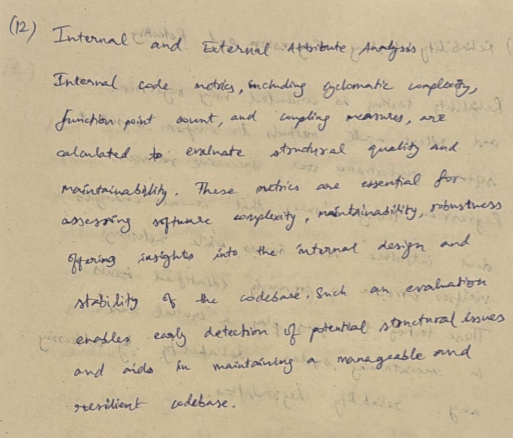 (12) Internal and External Attribute Analysis
Internal code metrics, including cyclomatic complexity,
function point count, and coupling measures, are
calculated to evaluate structural quality and
maintainability. These metrics are essential for
assessing software complexity, maintainability, robustness
offering insights into the internal design and
stability of the codebase. Such an evaluation
enables early detection of potential structural issues
and aids in maintaining a manageable and
resilient codebase.